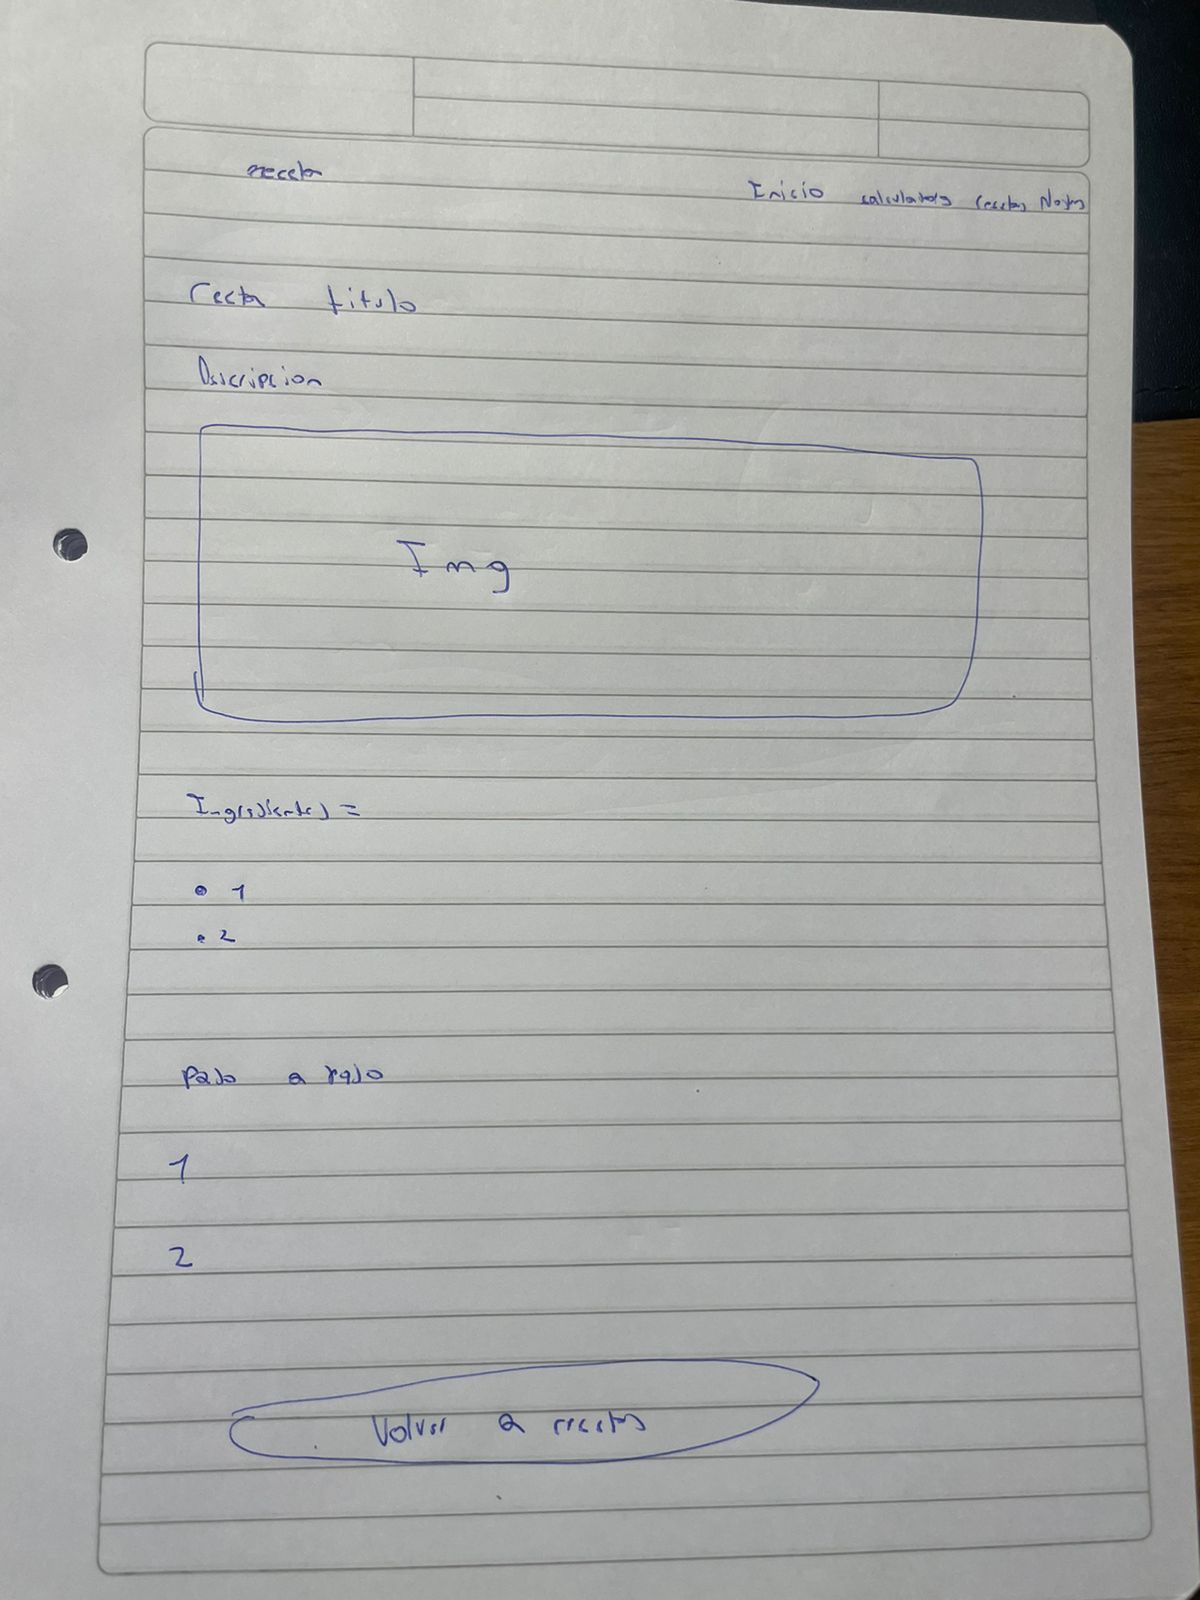 receta
Inicio calculadora recetas Notas
receta titulo
Descripcion
Img
Ingredientes =
• 1
• 2
Paso a paso
1
2
Volver a recetas